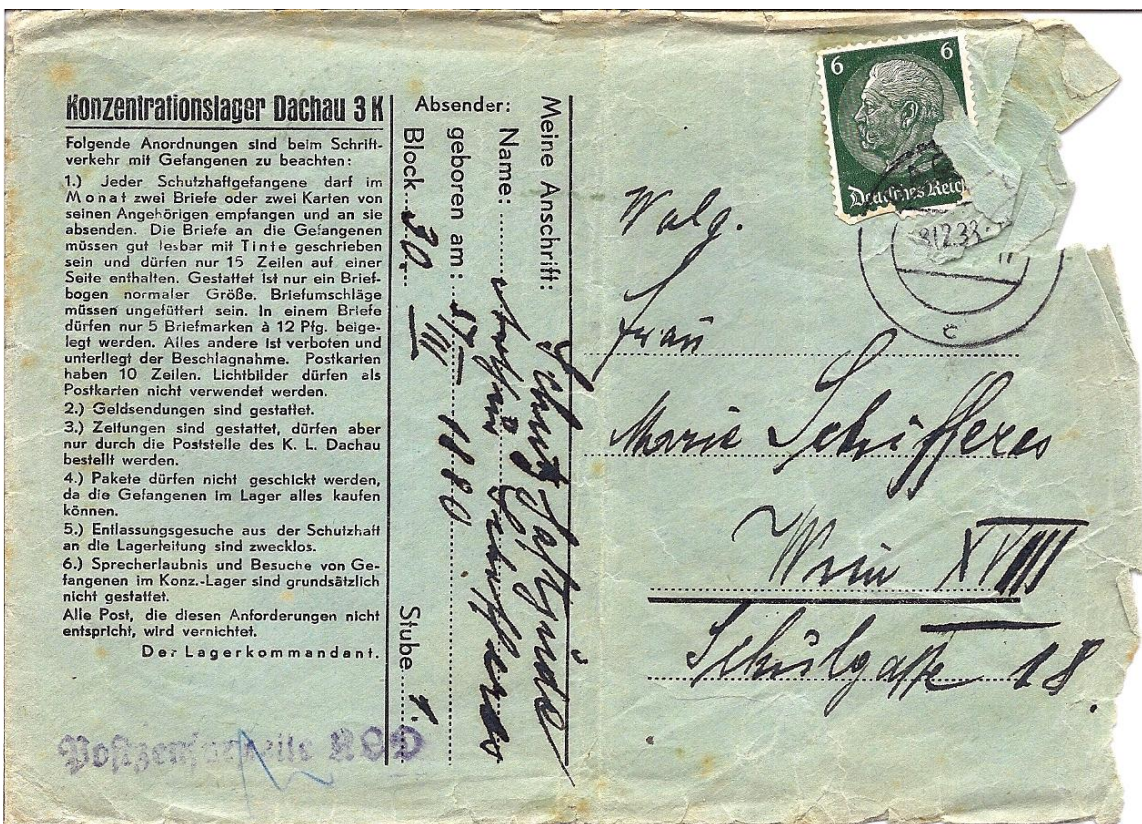 Konzentrationslager Dachau 3 K
Folgende Anordnungen sind beim Schrift-
verkehr mit Gefangenen zu beachten:
1.) Jeder Schutzhaftgefangene darf im
Monat zwei Briefe oder zwei Karten von
seinen Angehörigen empfangen und an sie
absenden. Die Briefe an die Gefangenen
müssen gut lesbar mit Tinte geschrieben
sein und dürfen nur 15 Zeilen auf einer
Seite enthalten. Gestattet ist nur ein Brief-
bogen normaler Größe. Briefumschläge
müssen ungefüttert sein. In einem Briefe
dürfen nur 5 Briefmarken à 12 Pfg. beige-
legt werden. Alles andere ist verboten und
unterliegt der Beschlagnahme. Postkarten
haben 10 Zeilen. Lichtbilder dürfen als
Postkarten nicht verwendet werden.
2.) Geldsendungen sind gestattet.
3.) Zeitungen sind gestattet, dürfen aber
nur durch die Poststelle des K. L. Dachau
bestellt werden.
4.) Pakete dürfen nicht geschickt werden,
da die Gefangenen im Lager alles kaufen
können.
5.) Entlassungsgesuche aus der Schutzhaft
an die Lagerleitung sind zwecklos.
6.) Sprecherlaubnis und Besuche von Ge-
fangenen im Konz.-Lager sind grundsätzlich
nicht gestattet.
Alle Post, die diesen Anforderungen nicht
entspricht, wird vernichtet.
Der Lagerkommandant.
Postzensurstelle K.L.D
Meine Anschrift:
Absender:
Name:
geboren am: 1880
Block 30. III Stube 1.
6 6
Deutsches Reich
c
Frau
Marie Schifferes
Wien XVIII
Schulgasse 18